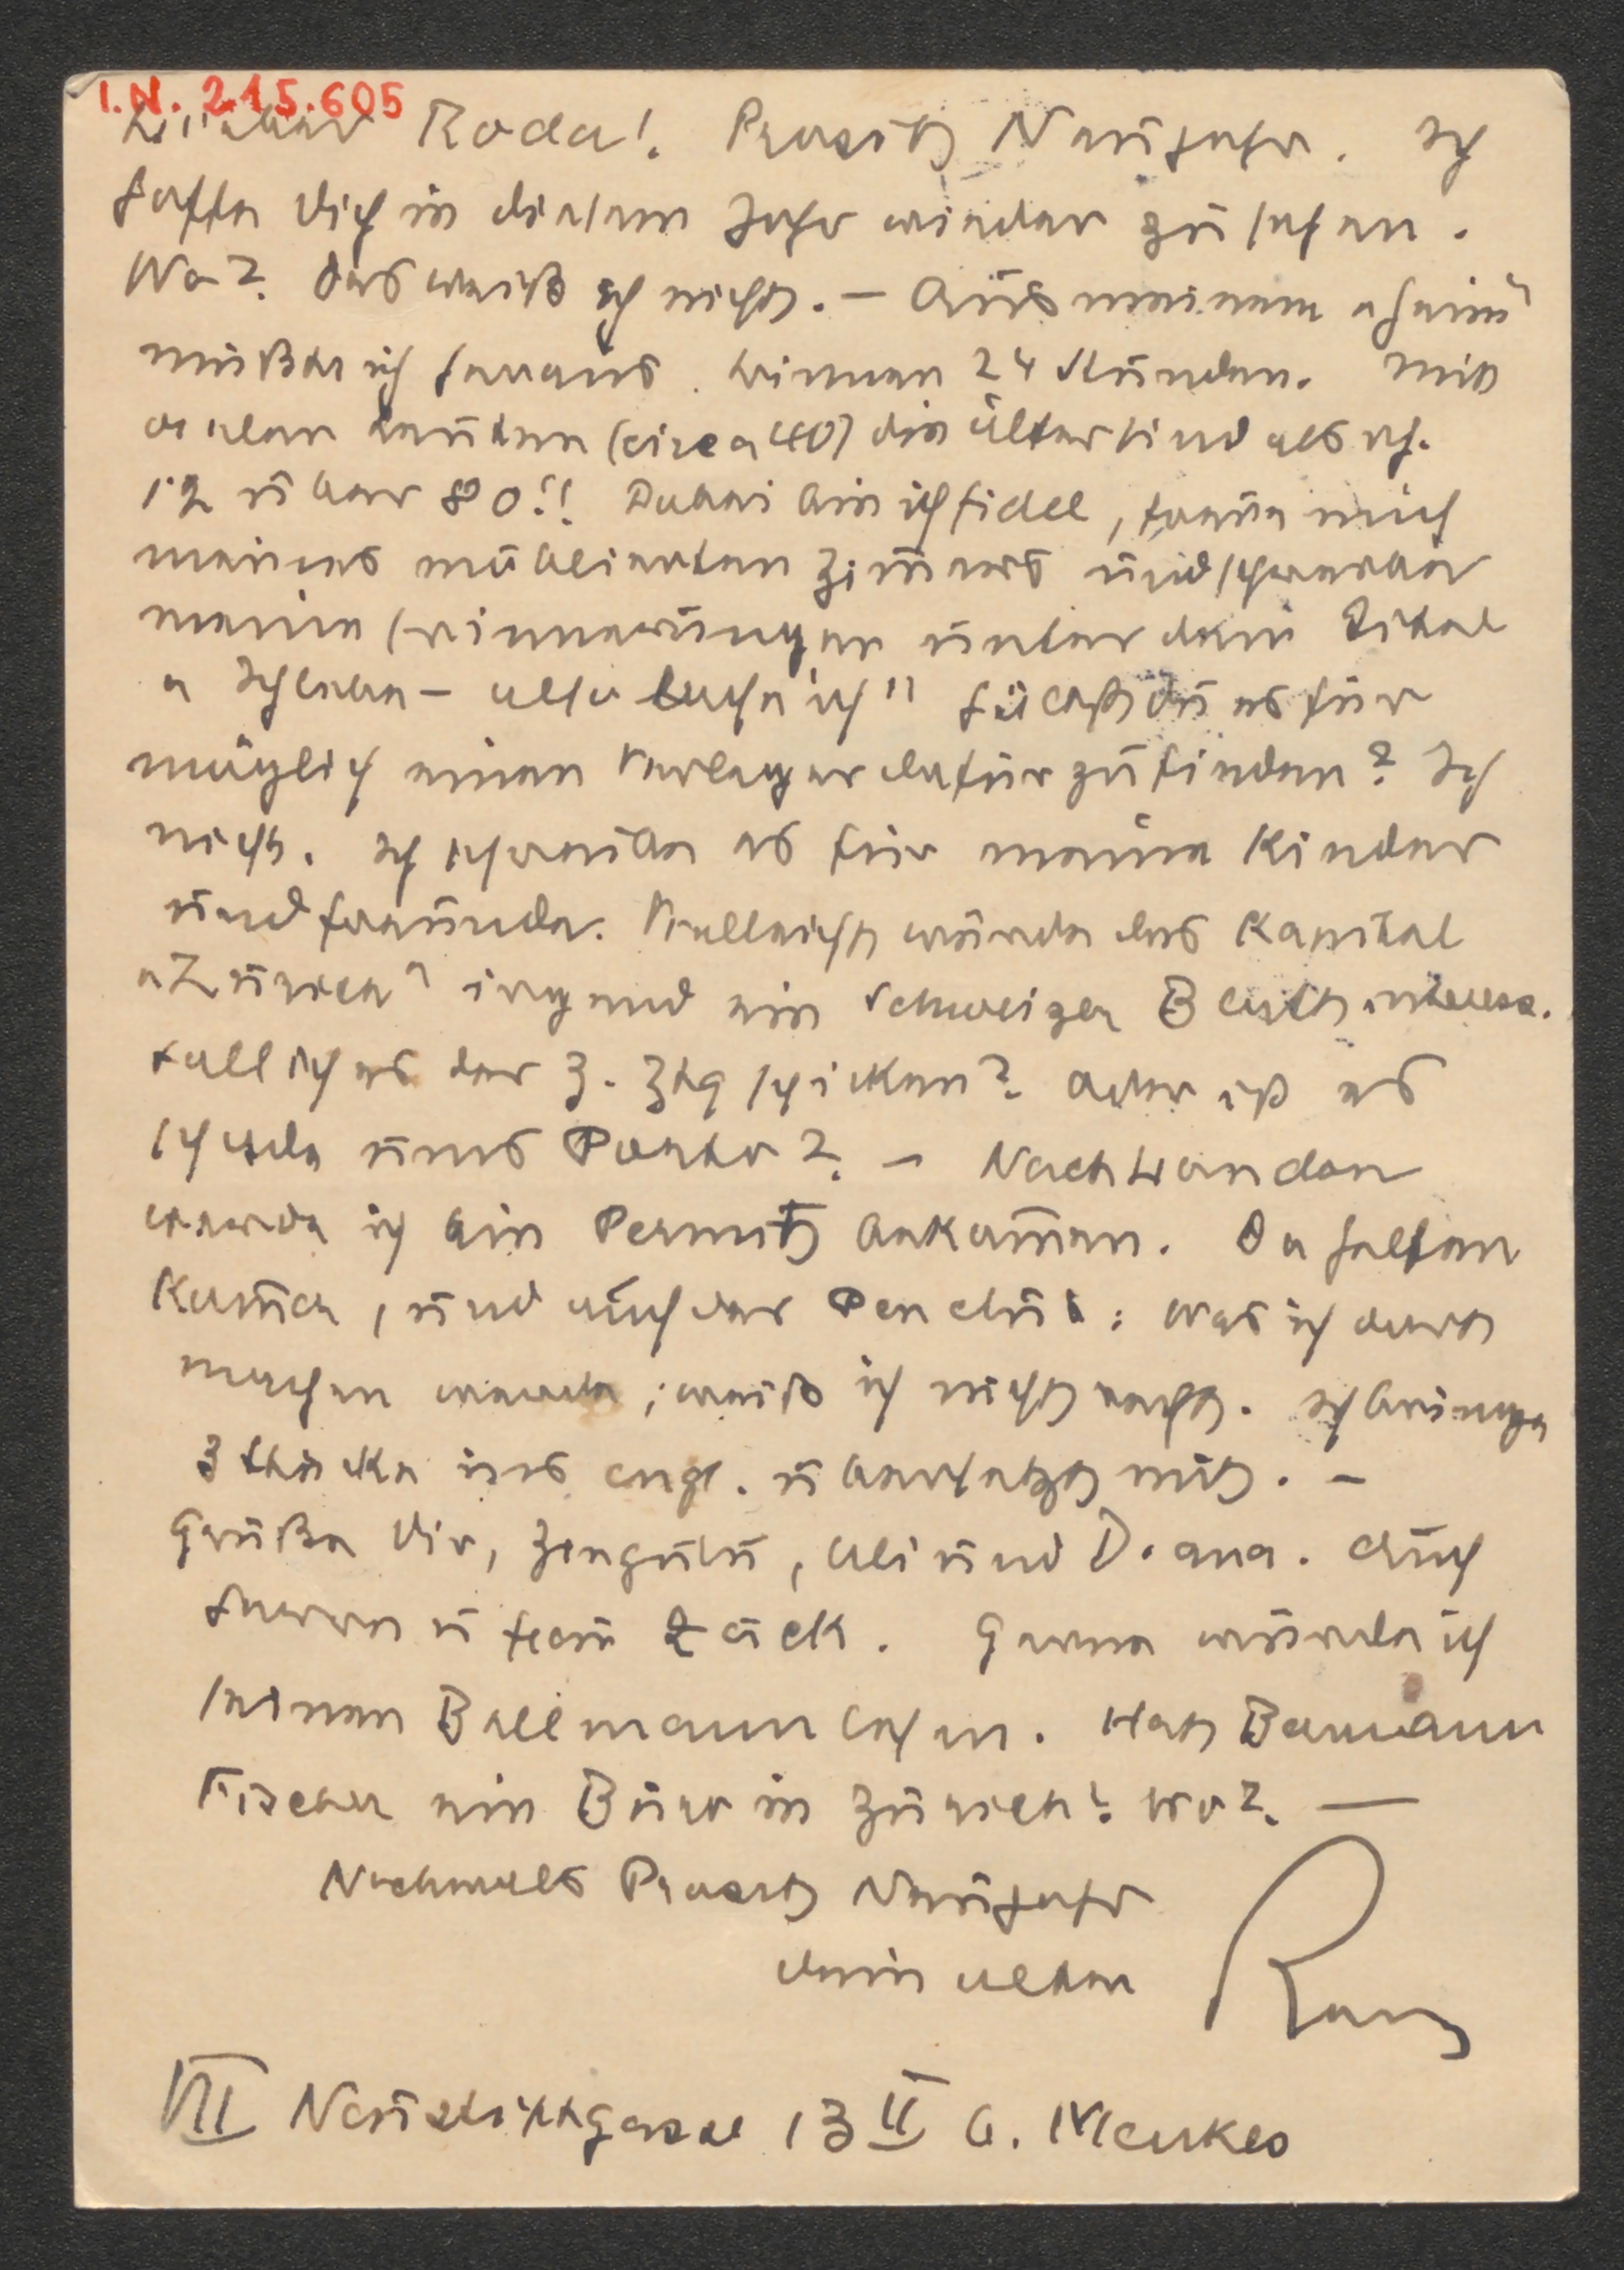 I.N. 215.605
Lieber Roda! Prosit Neujahr. Ich
hoffe Dich in diesem Jahr wieder zu sehen.
Wo? Das weiß ich nicht. – Aus meinem „Heim"
mußte ich heraus. Binnen 24 Stunden. Mit
vielen Leuten (circa 40) die älter sind als ich.
12 über 80!! Dabei bin ich fidel, freue mich
meines möblierten Zimers und schreibe
meine Erinnerungen unter dem Titel
„Ich lebe – also lache ich" Hältst du es für
möglich einen Verleger dafür zu finden? Ich
nicht. Ich schreibe es für meine Kinder
und Freunde. Vielleicht würde das Kapitel
„Zürich" irgend ein Schweizer Blatt interess.
Soll ich es der Z. Ztg schicken? Oder ist es
schade ums Porto? – Nach London
werde ich ein Permit bekomen. Da helfen
Kuma, und auch der Penclub: Was ich dort
machen werde, weiß ich nicht recht. Ich bringe
3 Stücke ins engl. übersetzt mit. –
Grüße Dir, Ali und Dana. Auch
Herrn u Frau Zück. Gerne würde ich
seinen Bellmann lesen. Hat Bermann
Fischer ein Büro in Zürich? Wo? —
Nochmals Prosit Neujahr
Dein alter
VII Neustiftgasse 13 II b. Menkes